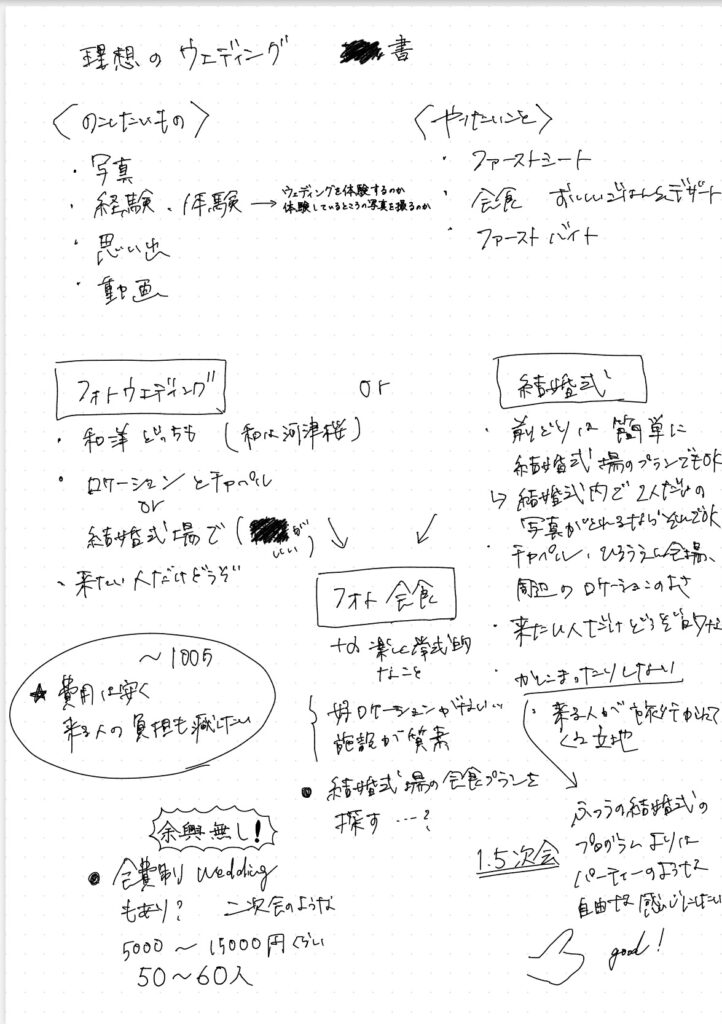 理想の ウェディング 書
〈のこしたいもの〉
・写真
・経験、体験 → ウェディングを体験するのか
体験しているところの写真を撮るのか
・思い出
・動画
〈やりたいこと〉
・ファーストミート
・会食 おいしいごはん&デザート
・ファーストバイト
フォトウェディング
・和洋どっちも (和は河津桜)
・ロケーションとチャペル
or
結婚式場で ( がいい)
・来たい人だけどうぞ
or
結婚式
・前どりは 簡単に
結婚式場のプランでもOK
↳ 結婚式内で2人だけの
写真がとれるならそれでOK
・チャペル、ひろうえん会場、
周辺のロケーションのよさ
・来たい人だけどうぞ的な
・かしこまったりしない
・来る人が旅行がてら
くる立地
フォト会食
+α 楽しい挙式的
なこと
好ロケーションがない…
施設が質素
● 結婚式場の会食プランを
探す …?
~100万
★費用は安く
来る人の負担も減したい
余興無し!
● 会費制 wedding
もあり? 二次会のような
5000~15000円くらい
50~60人
1.5次会
ふつうの結婚式の
プログラムよりは
パーティーのような
自由な感じにしたい
good!